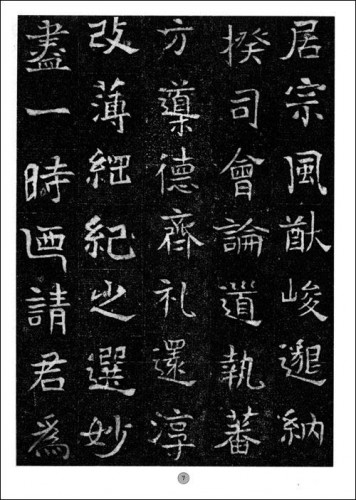 居宗風猷峻邈納
揆司會論道執蕃
方導德齊礼還淳
改薄綱紀之選妙
盡一時迺請君為
7